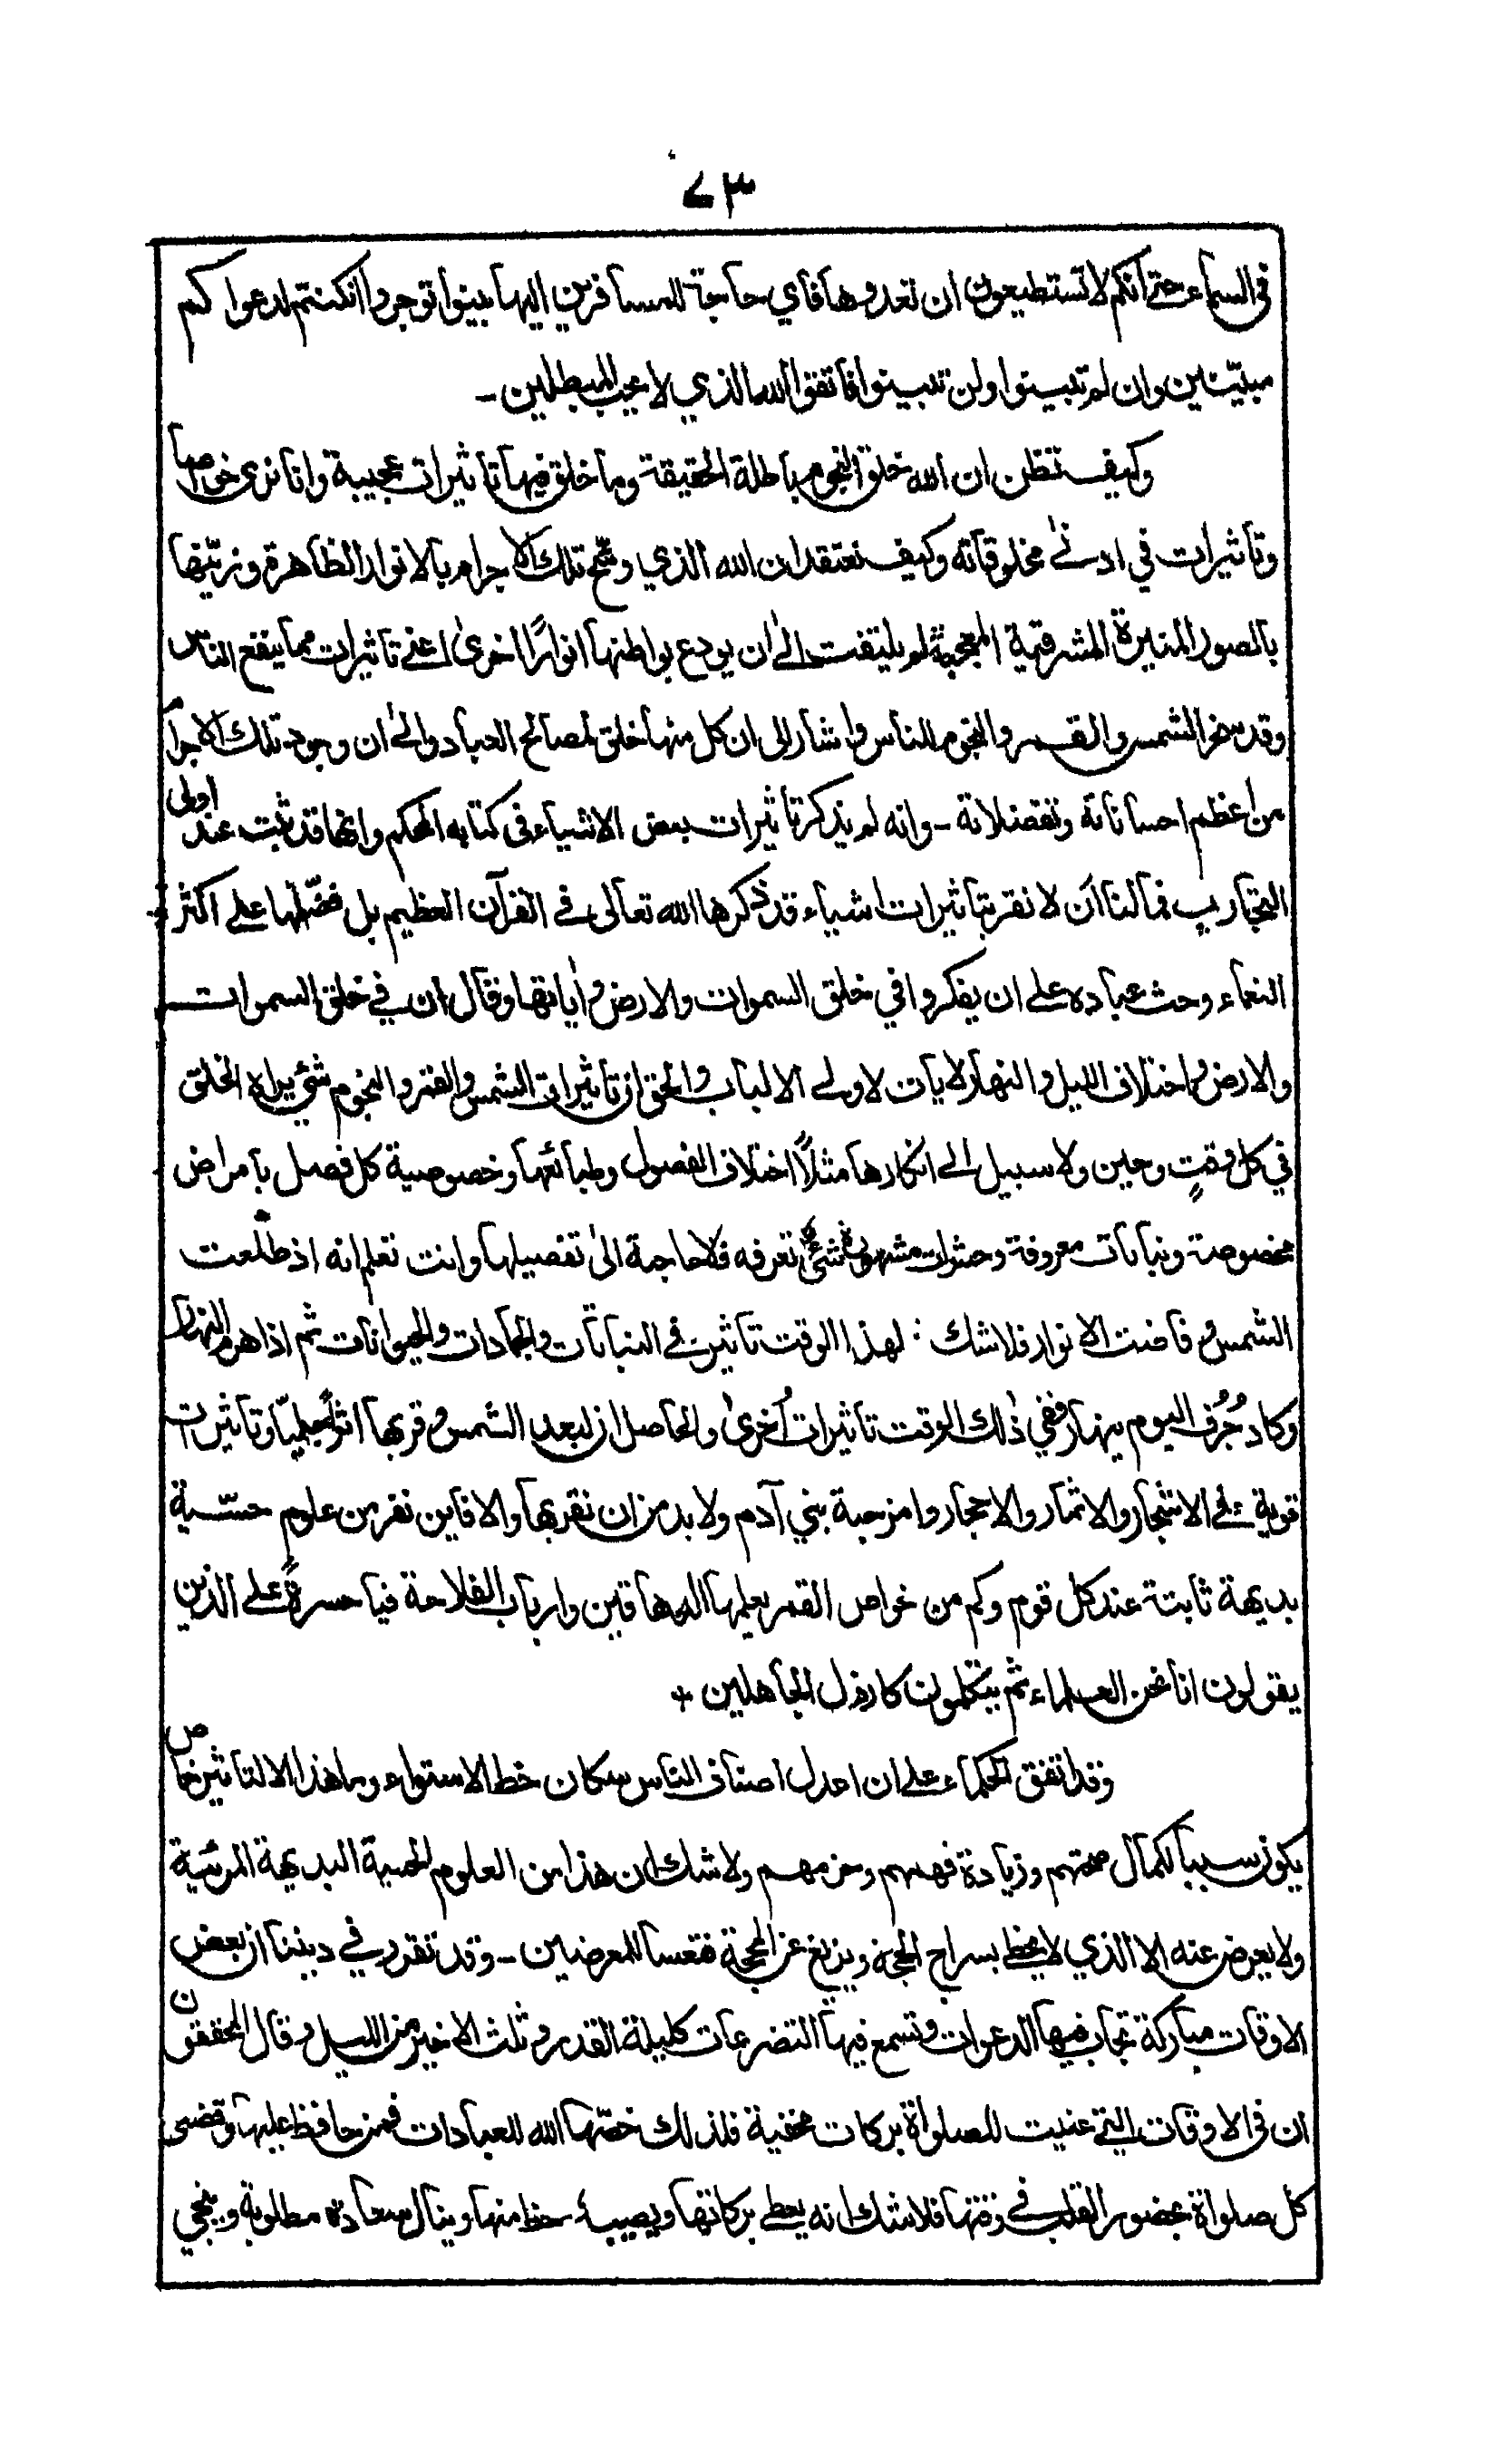 ٧٣
في السماء حتى انكم لا تستطيعون ان تعدوها فاي حاجة للمسافرين اليها بينوا توجروا ان كنتم لدعواكم
مبيّنين وان لم تبينوا ولن تبينوا فاتقوا الله الذي لا يحب المبطلين ـ
وكيف تظن ان الله خلق النجوم باطلة الحقيقة وما خلق فيها تاثيرات عجيبة وانا نرى خواصها
وتاثيرات في ادنىٰ مخلوقاته وكيف نعتقد ان الله الذي وشّح تلك الاجرام بالانوار الظاهرة وزيّنها
بالصور المنيرة المشرقية المعجبة لم يلتفت الىٰ ان يودع بواطنها انوارًا اخرىٰ اعني تاثيرات مما ينفع الناس
وقد سخر الشمس والقمر والنجوم للناس واشار الى ان كل منها خلق لمصالح العباد والىٰ ان وجود تلك الاجرام
من اعظم احساناته وتفضلاته ـ وانه لم يذكر تاثيرات بعض الاشياء في كتابه المحكم وانها قد ثبتت عند اولى
التجاريب فما لنا ان لا نقر بتاثيرات اشياء قد ذكرها الله تعالى في القرآن العظيم بل فضّلها على اكثر
النعماء وحث عباده على ان يفكروا في خلق السموات والارض وأياتها وقال ان في خلق السموات
والارض واختلاف الليل والنهار لايات لاولى الالباب والحق ان تاثيرات الشمس والقمر والنجوم شئ يراه الخلق
في كل وقتٍ وحين ولا سبيل الى انكارها مثلًا اختلاف الفصول وطبائعها وخصوصية كل فصل بامراض
مخصوصة ونباتات معروفة وحشرات مشهورة شئ تعرفه فلا حاجة الىٰ تفصيلها وانت تعلم انه اذ طلعت
الشمس وفاضت الانوار فلا شك : لهذا الوقت تاثير في النباتات والجمادات والحيوانات ثم اذا هرم النهار
وكاد جُرُف اليوم ينهار ففي ذٰلك الوقت تاثيرات اُخرىٰ والحاصل ان لبعد الشمس وقربها اثرًا جليّا وتاثيرات
قوية في الاشجار والاثمار والاحجار وامزجة بني آدم ولا بد من ان نقر بها والا فاين نفر من علوم حسّية
بديهة ثابتة عند كل قوم وكم من خواص القمر يعلمها الدهاقين وارباب الفلاحة فيا حسرةً على الذين
يقولون انا نحن العلماء ثم يتكلمون كارذل الجاهلين +
وقد اتفق الحكماء على ان اعدل اصناف الناس سكان خط الاستواء وما هذا الا لتاثير خاص
يكون سببا لكمال صحتهم وزيادة فهمهم وحزمهم ولا شك ان هذا من العلوم الحسية البديهة المرئية
ولا يعرض عنه الا الذي لا يحظ بسراج الحجة ويزيغ عن المحجة فتعسا للمعرضين ـ وقد تقرر في ديننا ان بعض
الاوقات مباركة تجاب فيها الدعوات وتسمع فيها التضرعات كليلة القدر وثلث الاخير من الليل وقال المحققون
ان في الاوقات التي عنيت للصلواة بركات مخفية فلذلك خصّها الله للعبادات فمن حافظ عليها وقضى
كل صلواة بحضور القلب في وقتها فلا شك انه يعطى بركاتها ويصيبه حظ منها وينال سعادة مطلوبة وينجي